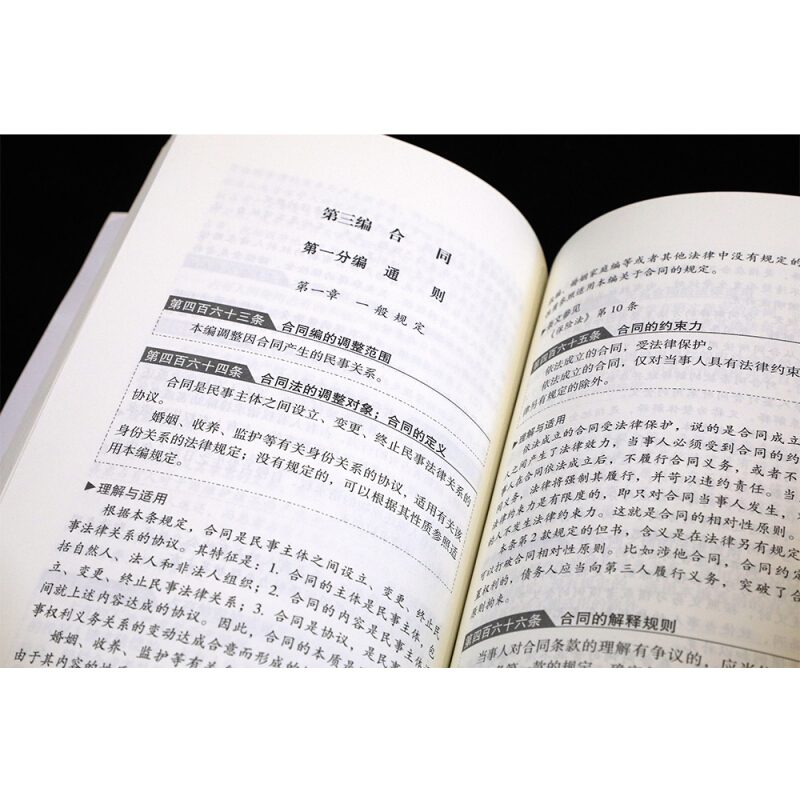 第三编 合 同
第一分编 通 则
第一章 一般规定
第四百六十三条 合同编的调整范围
本编调整因合同产生的民事关系。
第四百六十四条 合同法的调整对象；合同的定义
合同是民事主体之间设立、变更、终止民事法律关系的
协议。
婚姻、收养、监护等有关身份关系的协议，适用有关该
身份关系的法律规定；没有规定的，可以根据其性质参照适
用本编规定。
▶理解与适用
根据本条规定，合同是民事主体之间设立、变更、终止民
事法律关系的协议。其特征是：1. 合同的主体是民事主体，包
括自然人、法人和非法人组织；2. 合同的内容是民事主体设
立、变更、终止民事法律关系；3. 合同是协议，是民事主体之
间就上述内容达成的协议。因此，合同的本质是
事权利义务关系的变动达成合意而形成的
婚姻、收养、监护等有关
由于其内容的
婚姻家庭编等或者其他法律中没有规定的
参照适用本编关于合同的规定。
条文参见
《保险法》第10条
第四百六十五条 合同的约束力
依法成立的合同，受法律保护。
依法成立的合同，仅对当事人具有法律约束
律另有规定的除外。
▶理解与适用
依法成立的合同受法律保护，说的是合同成立
人之间产生了法律效力，当事人必须受到合同的约
事人在合同依法成立后，不履行合同义务，或者不
同义务，法律将强制其履行，并苛以违约责任。当
法律约束力是有限度的，即只对合同当事人发生，
的人不发生法律约束力。这就是合同的相对性原则。
本条第2款规定的但书，含义是在法律另有规定
可以打破合同相对性原则。比如涉他合同，合同约定
权利的，债务人应当向第三人履行义务，突破了合
原则拘束。
第四百六十六条 合同的解释规则
当事人对合同条款的理解有争议的，应当
第一款的规定，确定